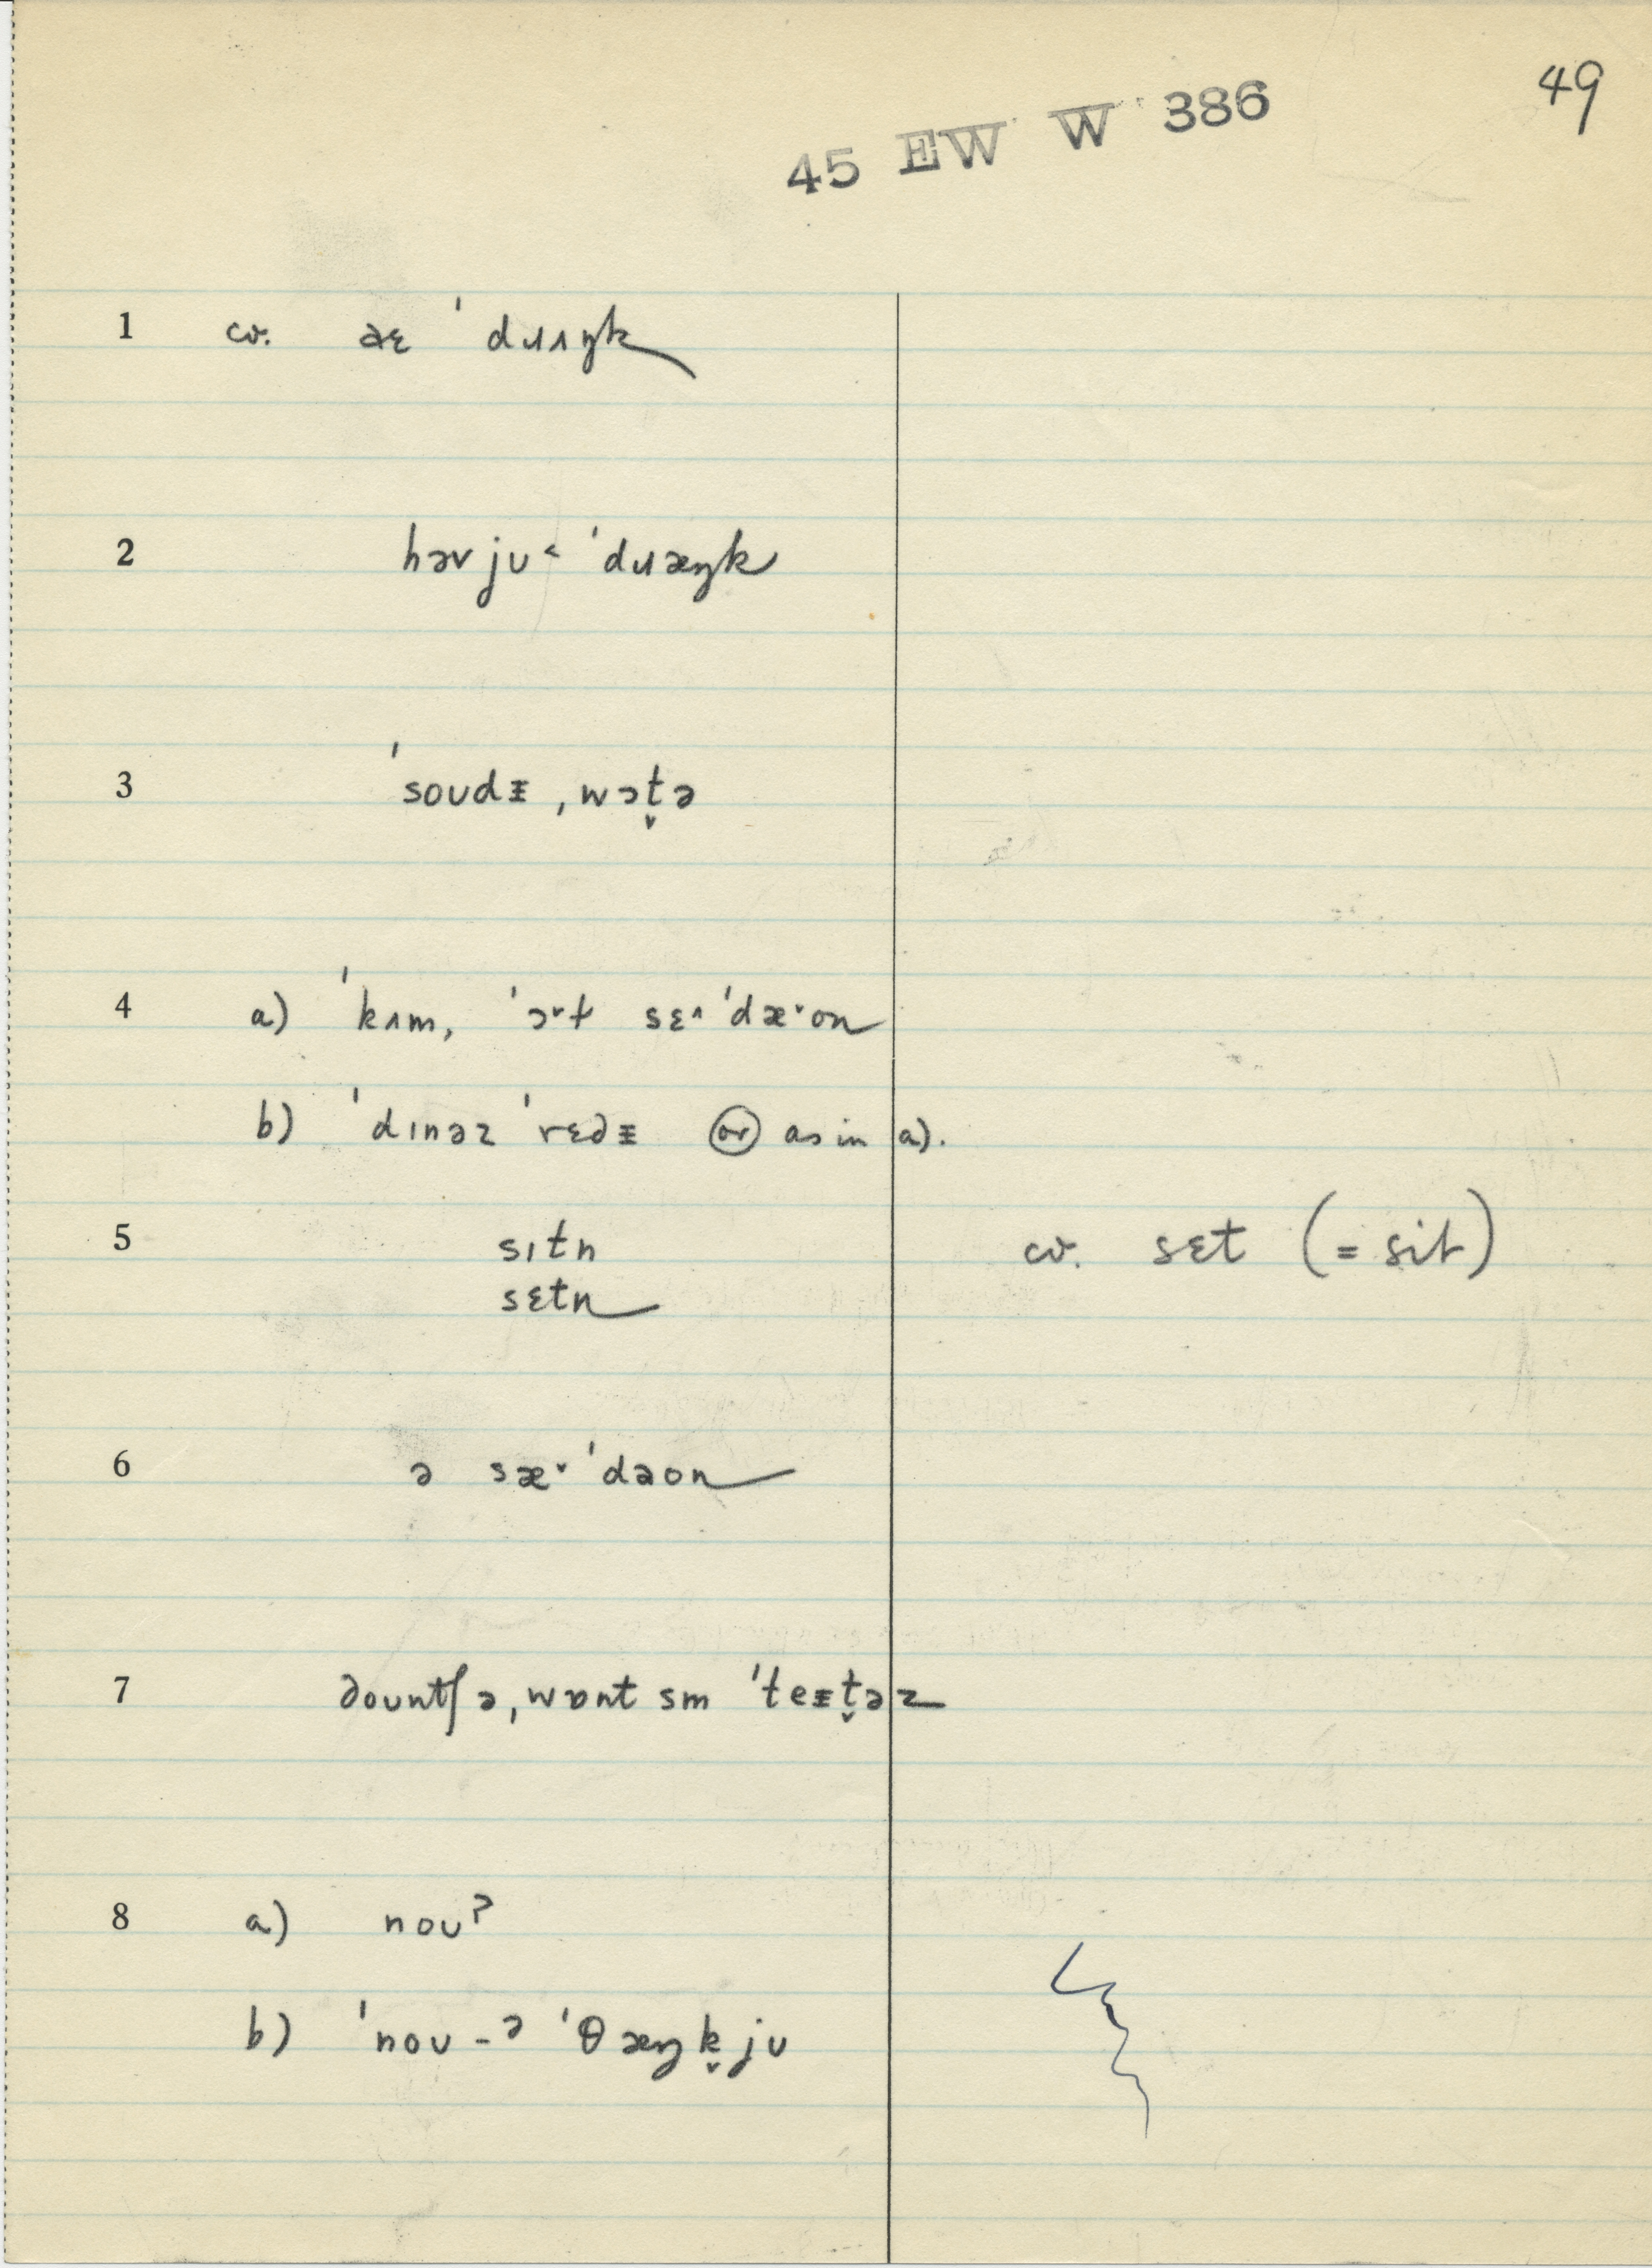 49
45 EW W 386
1 cv. aɛ ˈdɹʌŋk
2 həv ju˂ ˈdɹæŋk
3 ˈsoʊdᵻ ˌwɔt̬ə
4 a) ˈkʌm, ˈɔ˅t sɛ˄ ˈdæ˅on
b) ˈdɪnəz ˈrɛdᵻ or as in a).
5 sɪtn cv. sɛt (= sit)
sɛtn
6 ə sæ˅ ˈdaon
7 dountʃə ˌwɒnt sm ˈteᵻt̬əz
8 a) nouˀ
b) ˈnou – ə ˈθæŋk̬ju